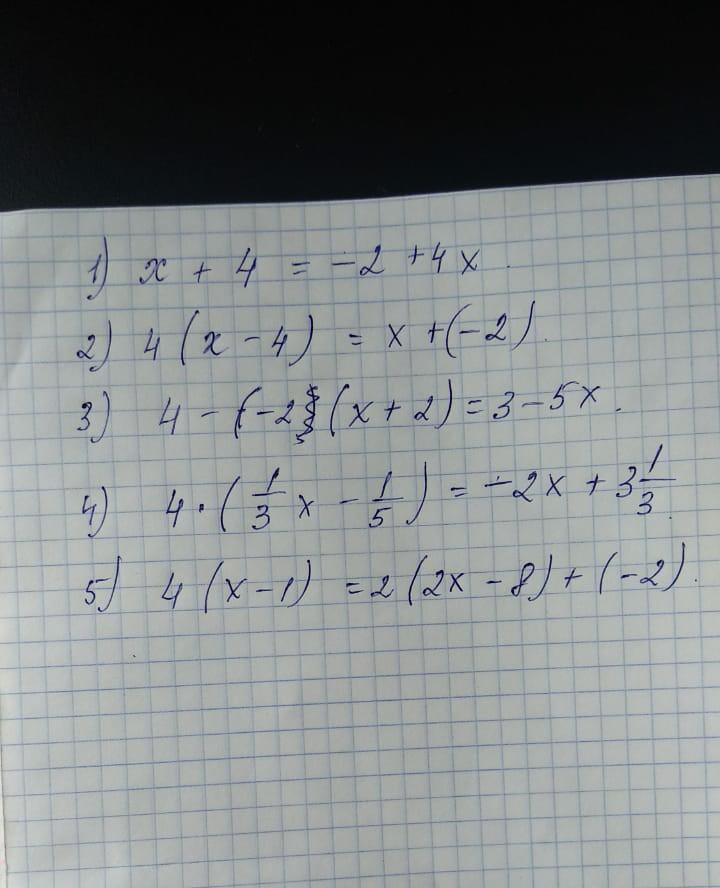 1) x + 4 = -2 + 4x.
2) 4(x - 4) = x + (-2).
3) 4 - (-2)(x + 2) = 3 - 5x.
4) 4 · (1/3 x - 1/5) = -2x + 3 1/3.
5) 4(x - 1) = 2(2x - 8) + (-2).